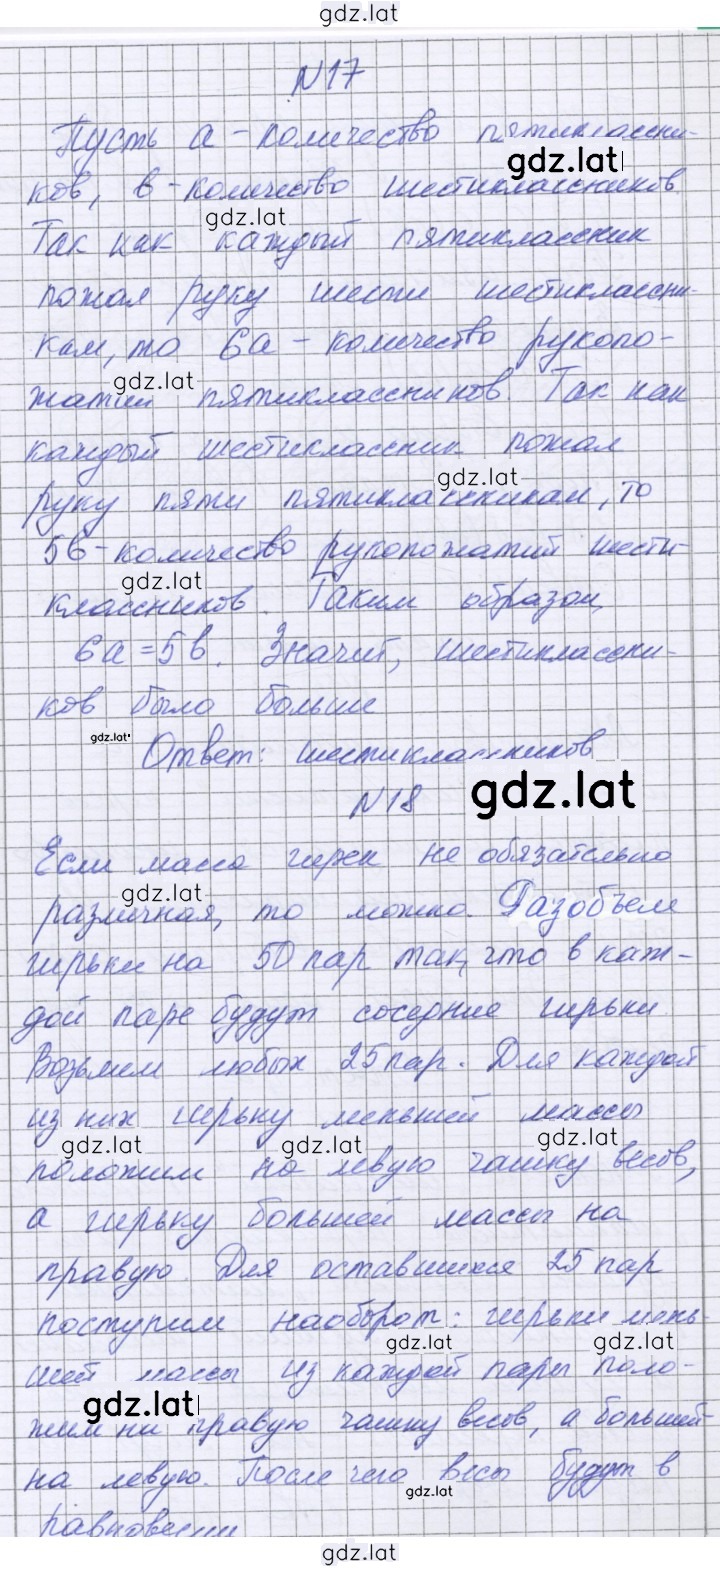 gdz.lat
N17
Пусть a - количество пятиклассни-
gdz.lat
ков, в - количество шестиклассников.
gdz.lat
Так как каждый пятиклассник
пожал руку шести шестиклассни-
кам, то 6a - количество рукопо-
gdz.lat
жатий пятиклассников. Так как
каждый шестиклассник пожал
gdz.lat
руку пяти пятиклассникам, то
5в - количество рукопожатий шести-
gdz.lat
классников. Таким образом,
6a = 5в. Значит, шестикласни-
ков было больше
gdz.lat
Ответ: шестиклассников
N18
gdz.lat
Если масса гирек не обязательно
gdz.lat
различная, то можно. Разобъем
гирьки на 50 пар так, что в каж-
дой паре будут соседние гирьки.
Возьмем любых 25 пар. Для каждой
из них гирьку меньшей массы
gdz.lat gdz.lat gdz.lat
положим на левую чашку весов,
а гирьку большей массы на
правую. Для оставшихся 25 пар
поступим наоборот: гирьки мень-
gdz.lat gdz.lat
шей массы из каждой пары поло-
gdz.lat
жим на правую чашку весов, а большей-
на левую. После чего весы будут в
gdz.lat
равновесии
gdz.lat